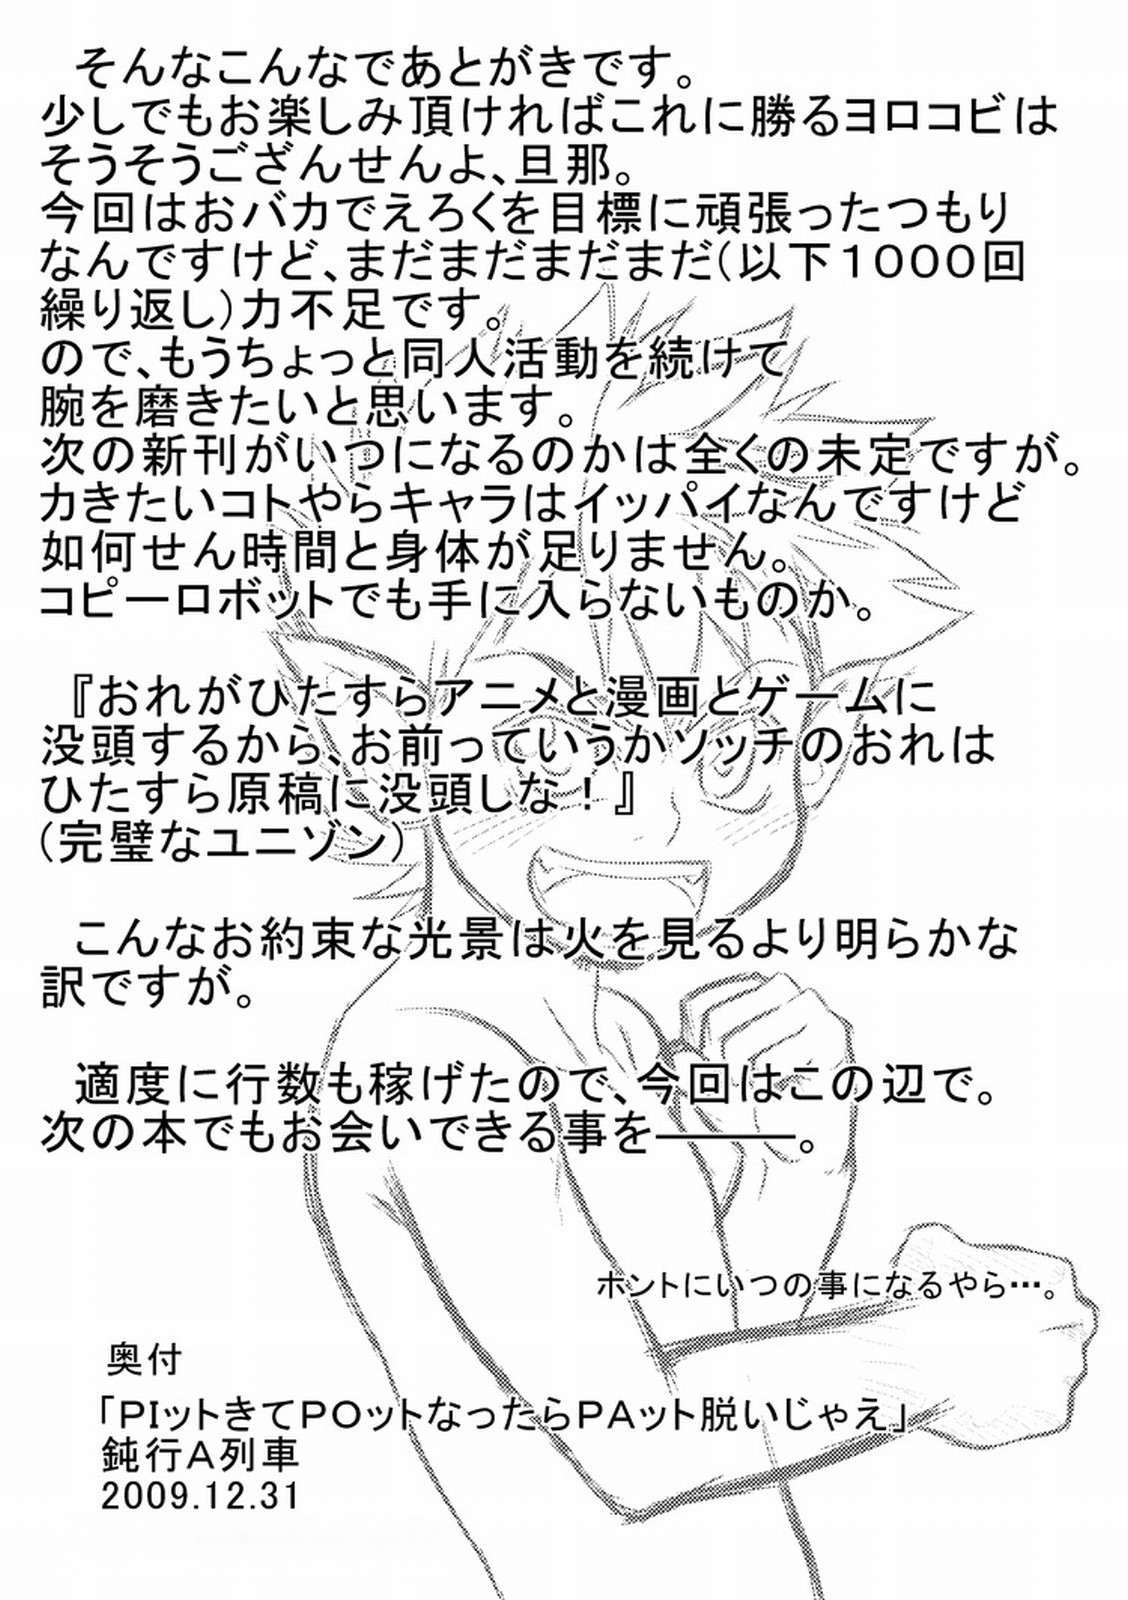 そんなこんなであとがきです。
少しでもお楽しみ頂ければこれに勝るヨロコビは
そうそうござんせんよ、旦那。
今回はおバカでえろくを目標に頑張ったつもり
なんですけど、まだまだまだまだ(以下1000回
繰り返し)力不足です。
ので、もうちょっと同人活動を続けて
腕を磨きたいと思います。
次の新刊がいつになるのかは全くの未定ですが。
カきたいコトやらキャラはイッパイなんですけど
如何せん時間と身体が足りません。
コピーロボットでも手に入らないものか。
『おれがひたすらアニメと漫画とゲームに
没頭するから、お前っていうかソッチのおれは
ひたすら原稿に没頭しな！』
(完璧なユニゾン)
こんなお約束な光景は火を見るより明らかな
訳ですが。
適度に行数も稼げたので、今回はこの辺で。
次の本でもお会いできる事を―――。
ホントにいつの事になるやら…。
奥付
「PIットきてPOットなったらPAット脱いじゃえ」
鈍行A列車
2009.12.31